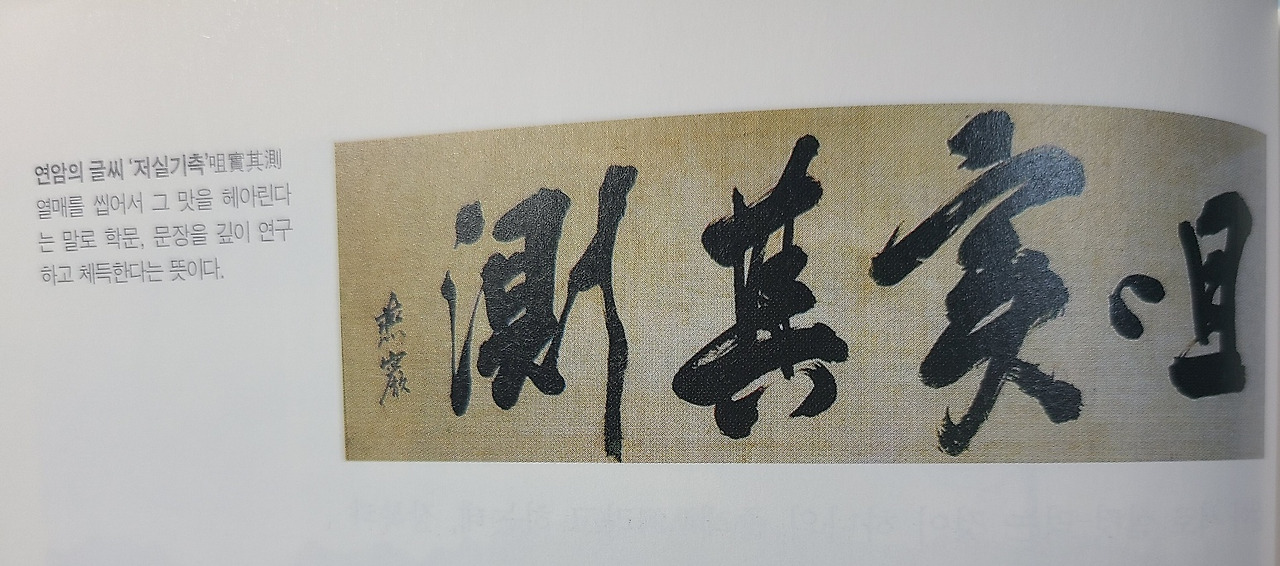 연암의 글씨 '저실기측'咀實其測
열매를 씹어서 그 맛을 헤아린다
는 말로 학문, 문장을 깊이 연구
하고 체득한다는 뜻이다.
咀實其測
燕巖